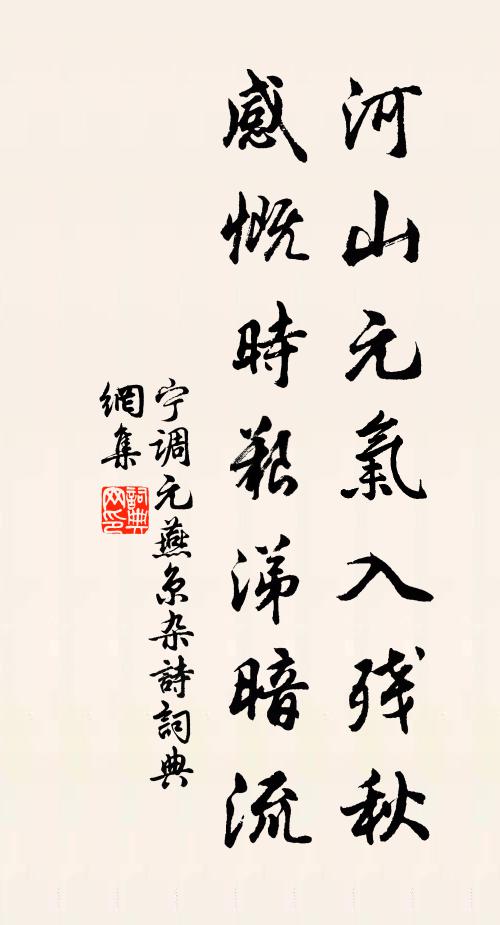 河山元氣入残秋
感慨時艱涕暗流
宁调元燕京杂詩詞典
網集
詞典
网印